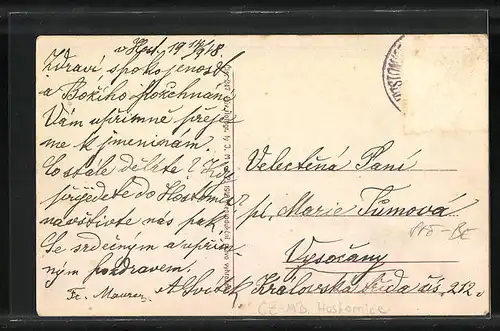 v Host. 19 14/9 18.
Zdraví, spokojenost
a Božího požehnání
Vám upřímně přeje-
me k jmeninám.
Co stále děláte? Kdy
přijedete do Hostomic
navštivte nás pak.
Se srdečným a upřím-
ným pozdravem.
Fr. Maurer
A. Svítek
HOSTOMICE
Velectěná Paní
pí. Marie Tůmová
Vysočany
Královská třída čís. 212.
CZ-Mb. Hostomice